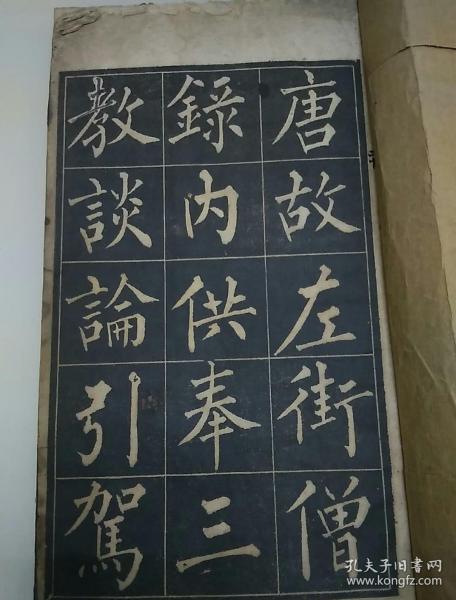 唐故左街僧
錄内供奉三
教談論引駕
孔夫子旧书网
www.kongfz.com